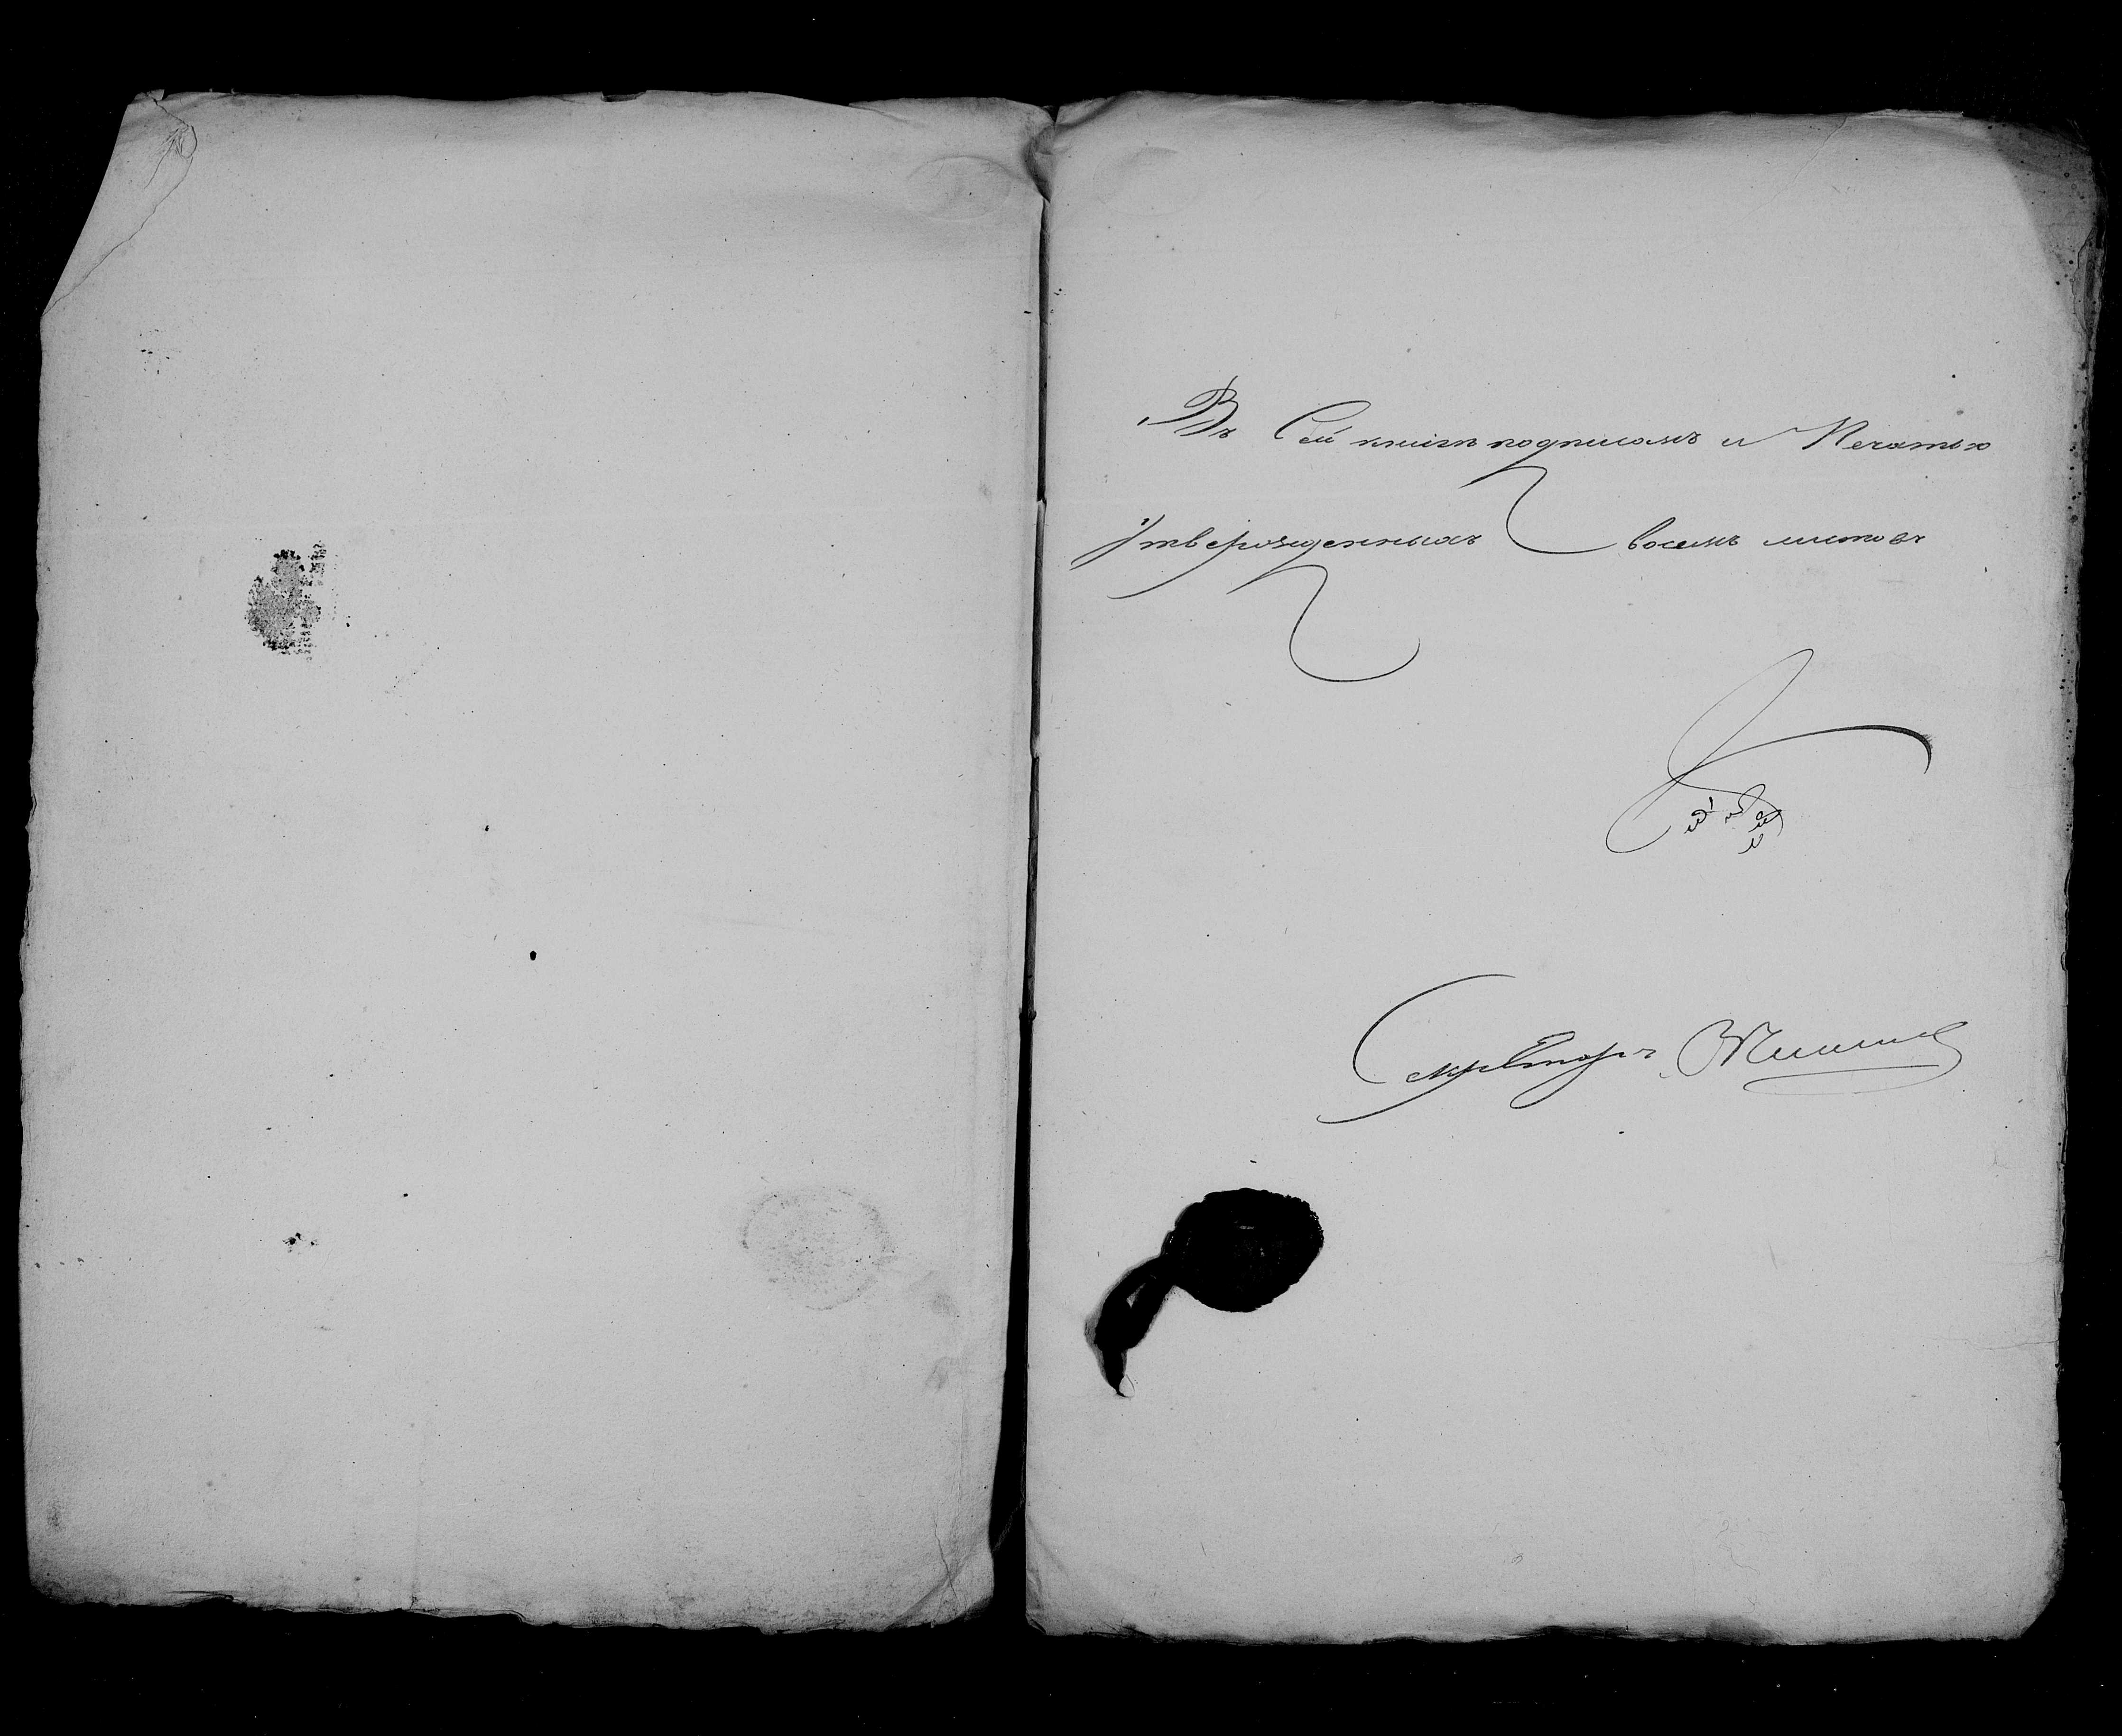 Въ Сей книгѣ подписомъ и Печатью
утвержденныхъ восемь листовъ
Секретарь